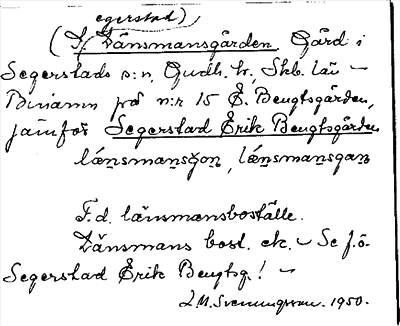 egerstad)
(S. Länsmansgården. Gård i
Segerstads s:n, Gudh. hr, Skb. län –
Binamn på n:r 15 E. Bengtsgården,
jämför Segerstad Erik Bengtsgården
F.d. länsmansboställe.
Länsmans bost. ek. – Se f.ö.
Segerstad Erik Bengtsg.! –
L.M. Svenungsson. 1950.